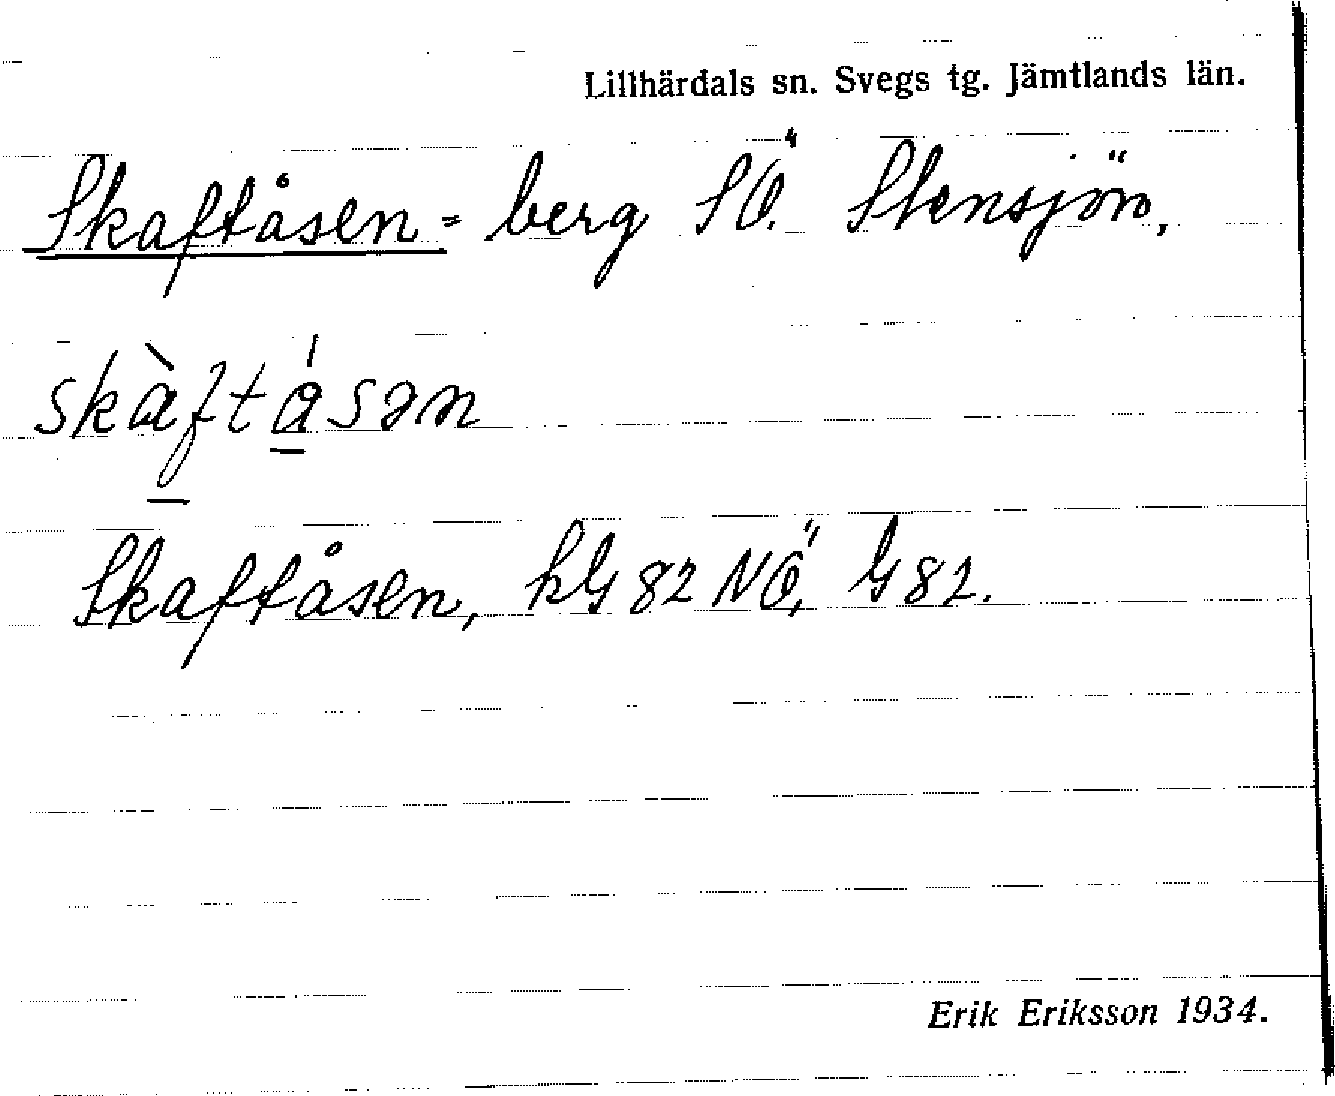 Lillhärdals sn. Svegs tg. Jämtlands län.
Skaftåsen = berg SÖ. Stensjön,
skàftásən
Skaftåsen, kG 82 NÖ, G 82.
Erik Eriksson 1934.